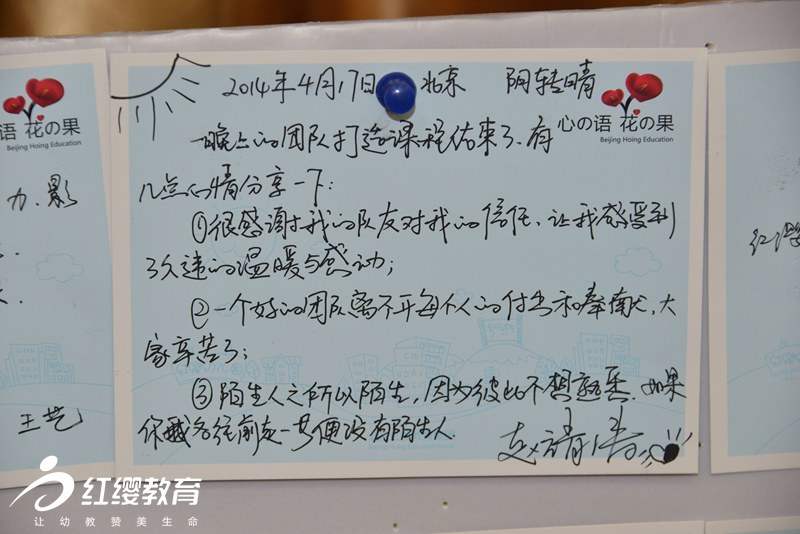 2014年4月17日 北京 阴转晴
心の语 花の果
Beijing Hoing Education
一晚上的团队打造课程结束了、有
几点心情分享一下:
①很感谢我的队友对我的信任、让我感受到
了久违的温暖与感动;
②一个好的团队离不开每个人的付出和奉献,大
家辛苦了;
③陌生人之所以陌生,因为彼此不想熟悉.如果
你我各往前走一步便没有陌生人.
语 花の果
Beijing Hoing Education
力.影
王艺
红缨教育
让幼教赞美生命